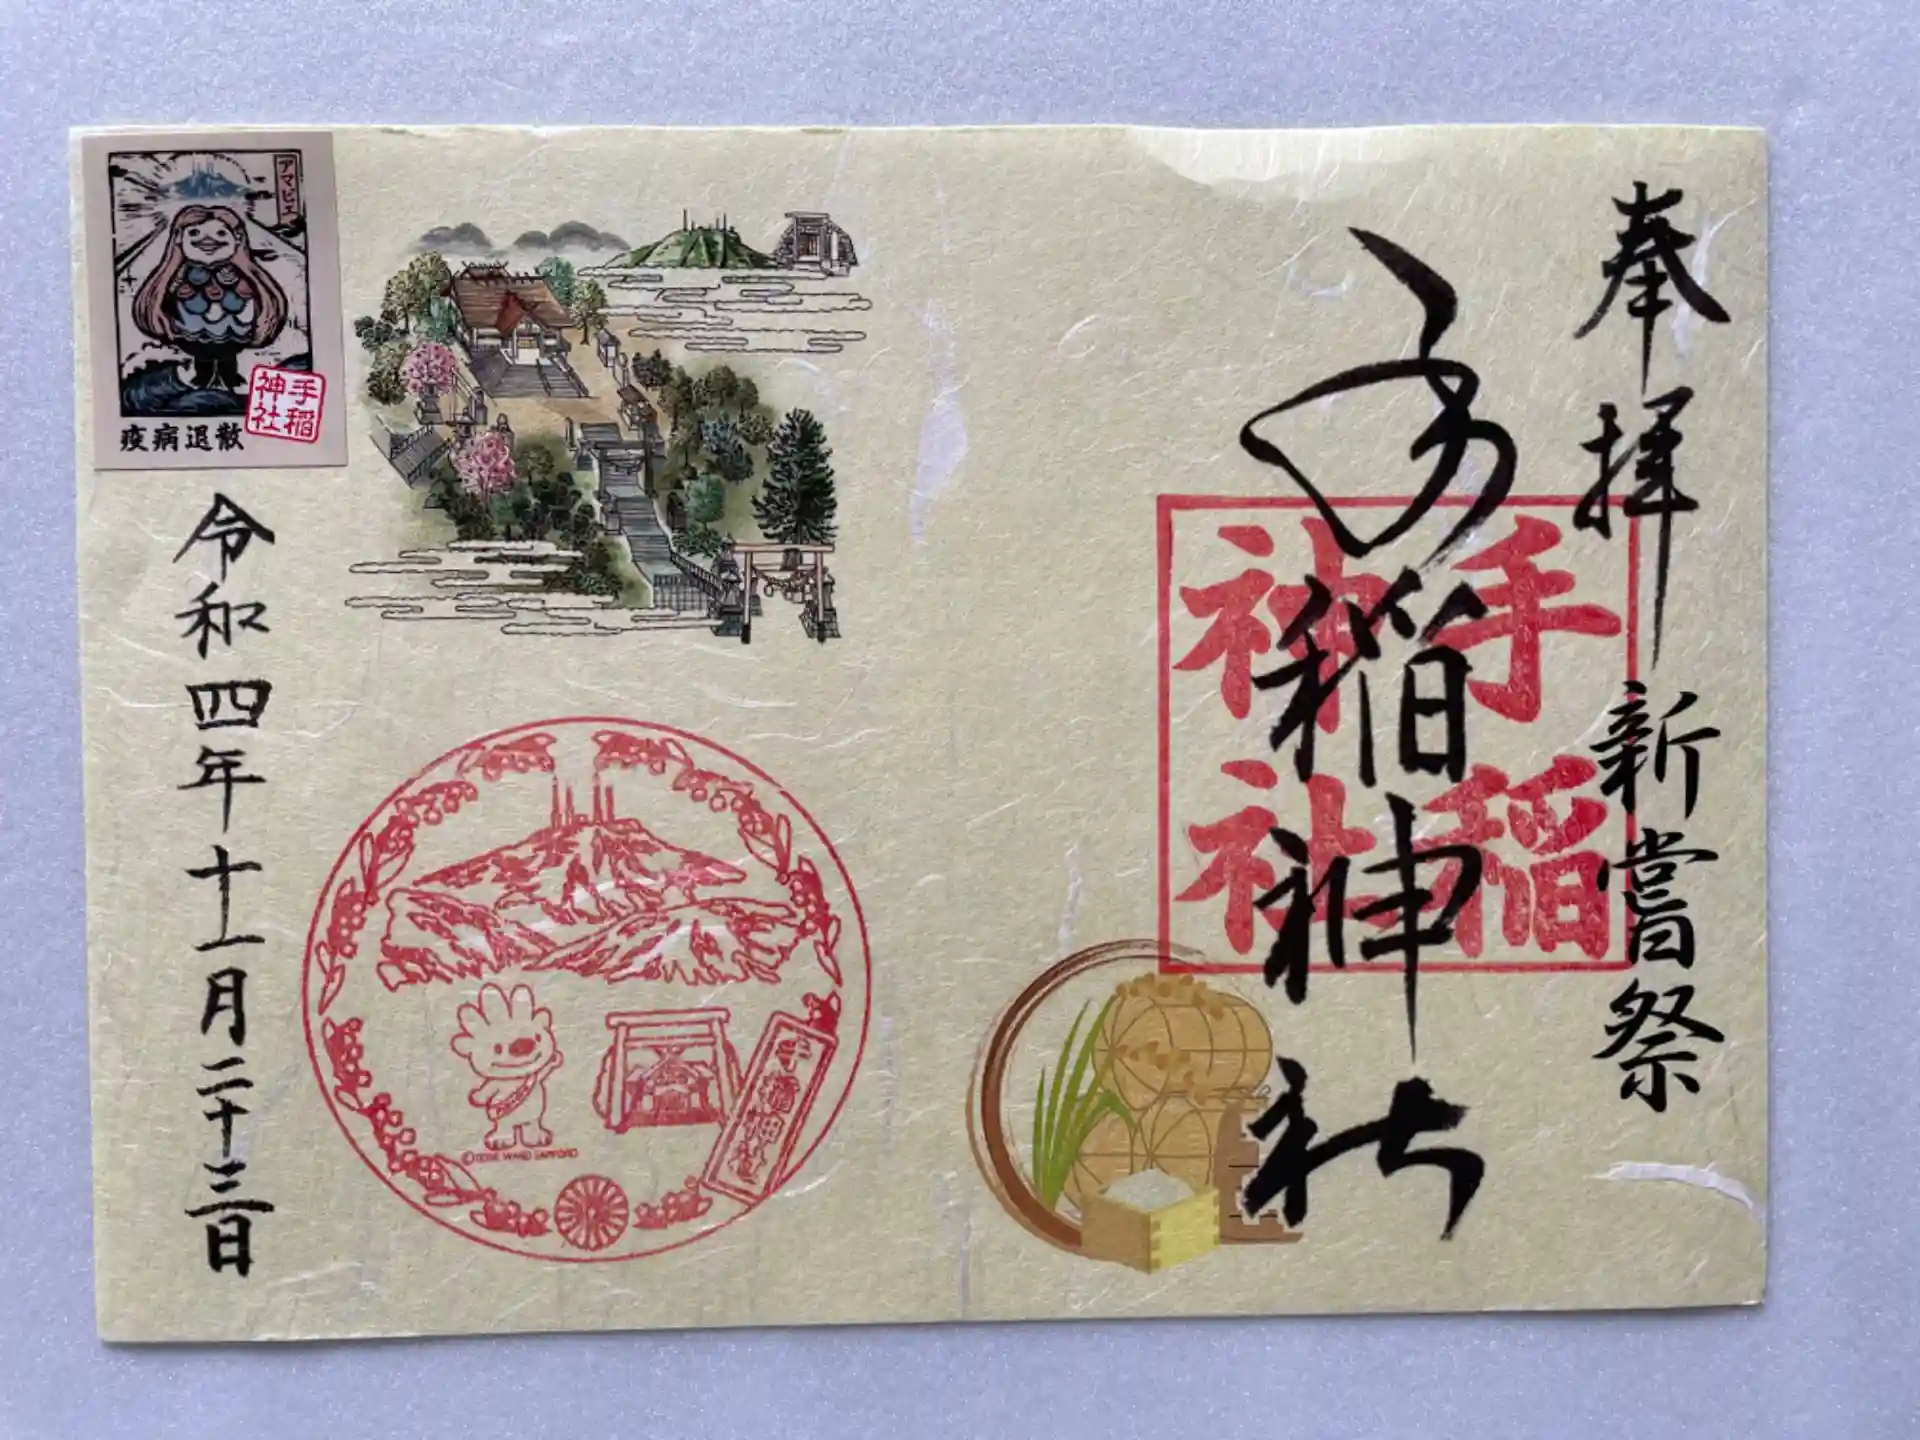 奉拝 新嘗祭
手稲神社
手稲
神社
アマビエ
手稲
神社
疫病退散
令和四年十一月二十三日
手稲神社